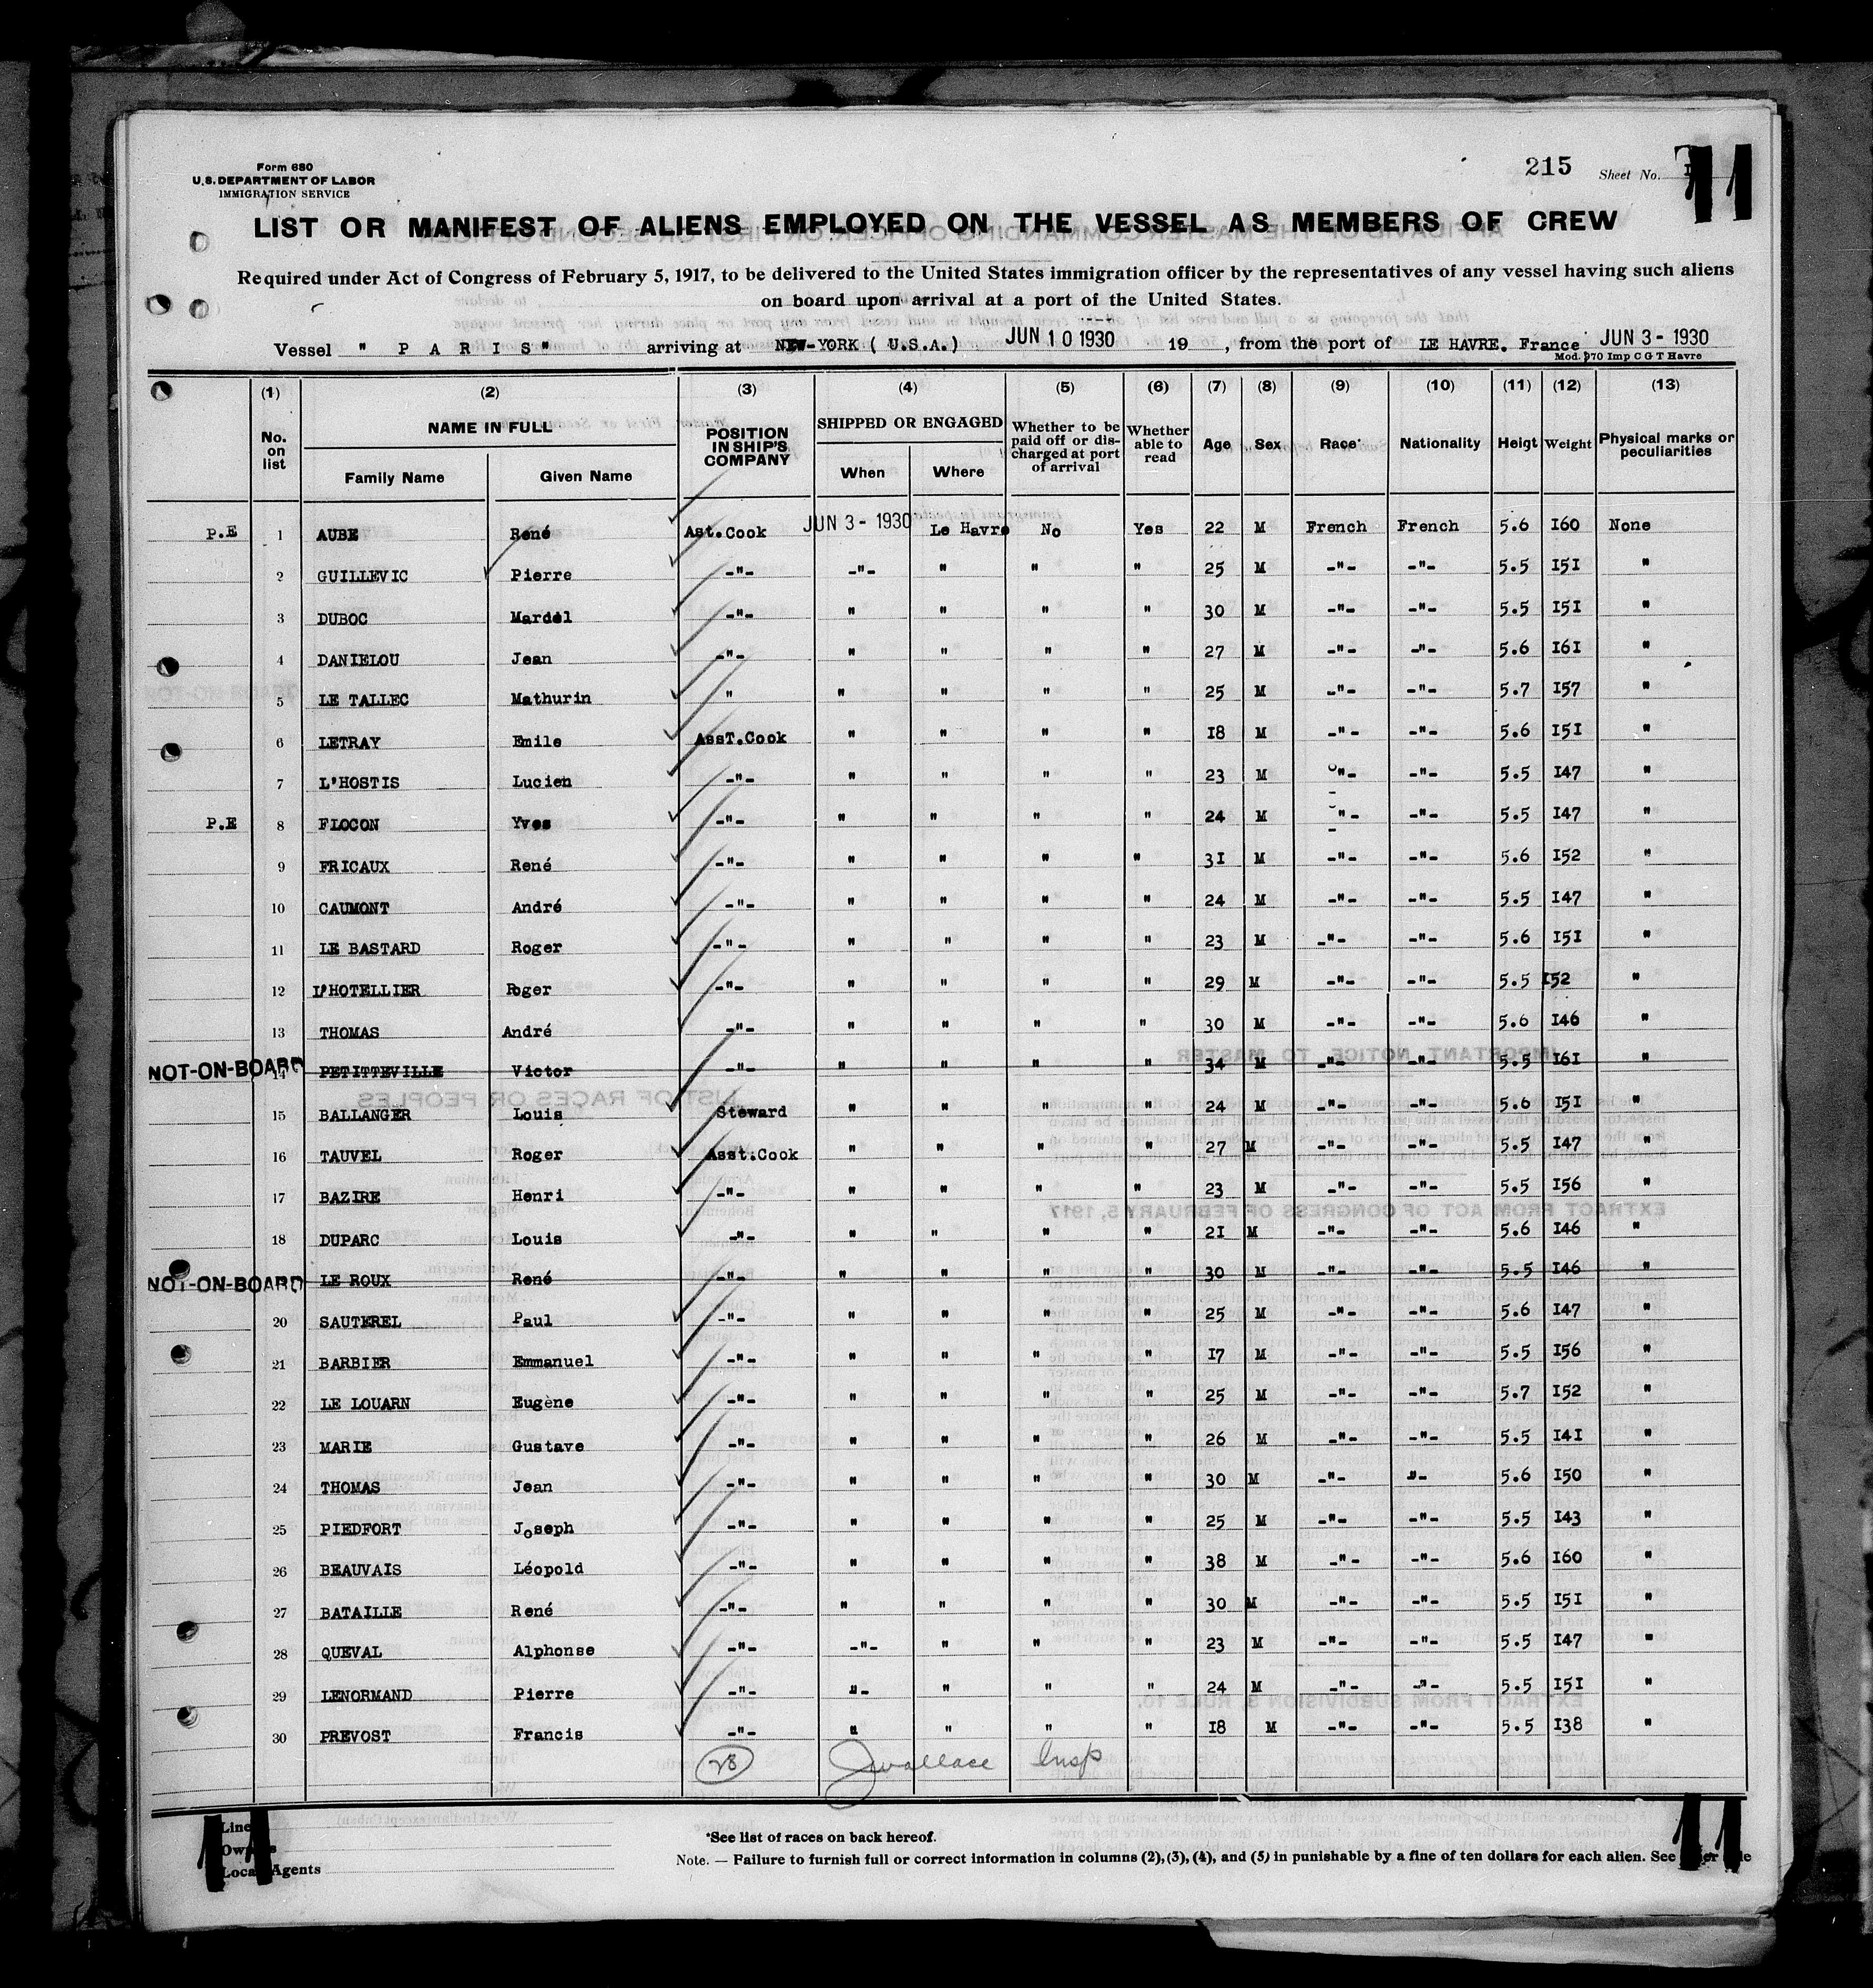 Form 680
U.S. DEPARTMENT OF LABOR
IMMIGRATION SERVICE
215 Sheet No. 11
LIST OR MANIFEST OF ALIENS EMPLOYED ON THE VESSEL AS MEMBERS OF CREW
Required under Act of Congress of February 5, 1917, to be delivered to the United States immigration officer by the representatives of any vessel having such aliens
on board upon arrival at a port of the United States.
Vessel " P A R I S " arriving at NEW-YORK ( U.S.A.) JUN 10 1930 19 , from the port of LE HAVRE. France JUN 3 - 1930
Mod. 970 Imp C G T Havre
(1) (2) (3) (4) (5) (6) (7) (8) (9) (10) (11) (12) (13)
No. on list NAME IN FULL Family Name Given Name POSITION IN SHIP'S COMPANY SHIPPED OR ENGAGED When Where Whether to be paid off or discharged at port of arrival Whether able to read Age Sex Race* Nationality Heigt Weight Physical marks or peculiarities
P.E 1 AUBE René Ast.Cook JUN 3 - 1930 Le Havre No Yes 22 M French French 5.6 160 None
2 GUILLEVIC Pierre -"- -"- " " " 25 M -"- -"- 5.5 151 "
3 DUBOC Mardel -"- " " " " 30 M -"- -"- 5.5 151 "
4 DANIELOU Jean -"- " " " " 27 M -"- -"- 5.6 161 "
5 LE TALLEC Mathurin " " " " " 25 M -"- -"- 5.7 157 "
6 LETRAY Emile AssT.Cook " " " " 18 M -"- -"- 5.6 151 "
7 L'HOSTIS Lucien -"- " " " " 23 M "- -"- 5.5 147 "
P.E 8 FLOCON Yves -"- " " " " 24 M "- -"- 5.5 147 "
9 FRICAUX René -"- " " " " 31 M -"- -"- 5.6 152 "
10 CAUMONT André -"- " " " " 24 M -"- -"- 5.5 147 "
11 LE BASTARD Roger -"- " " " " 23 M -"- -"- 5.6 151 "
12 L'HOTELLIER Roger -"- " " " " 29 M -"- -"- 5.5 152 "
13 THOMAS André -"- " " " " 30 M -"- -"- 5.6 146 "
NOT-ON-BOARD 14 PETITTEVILLE Victor -"- " " " " 34 M -"- -"- 5.5 161 "
15 BALLANGER Louis Steward " " " " 24 M -"- -"- 5.6 151 "
16 TAUVEL Roger Asst.Cook " " " " 27 M -"- -"- 5.5 147 "
17 BAZIRE Henri -"- " " " " 23 M -"- -"- 5.5 156 "
18 DUPARC Louis -"- " " " " 21 M -"- -"- 5.6 146 "
NOT-ON-BOARD LE ROUX René -"- " " " " 30 M -"- -"- 5.5 146 "
20 SAUTEREL Paul -"- " " " " 25 M -"- -"- 5.6 147 "
21 BARBIER Emmanuel -"- " " " " 17 M -"- -"- 5.5 156 "
22 LE LOUARN Eugène -"- " " " " 25 M -"- -"- 5.7 152 "
23 MARIE Gustave -"- " " " " 26 M -"- -"- 5.5 141 "
24 THOMAS Jean -"- " " " " 30 M -"- "- 5.6 150 "
25 PIEDFORT Joseph -"- " " " " 25 M -"- -"- 5.5 143 "
26 BEAUVAIS Léopold -"- " " " " 38 M -"- -"- 5.6 160 "
27 BATAILLE René -"- " " " " 30 M -"- -"- 5.5 151 "
28 QUEVAL Alphonse -"- -"- " " " 23 M -"- -"- 5.5 147 "
29 LENORMAND Pierre -"- "- " " " 24 M -"- -"- 5.5 151 "
30 PREVOST Francis -"- " " " " 18 M -"- -"- 5.5 138 "
28 JWallace Insp
Line
Owners
Local Agents
11 11
*See list of races on back hereof.
Note. — Failure to furnish full or correct information in columns (2), (3), (4), and (5) in punishable by a fine of ten dollars for each alien. See